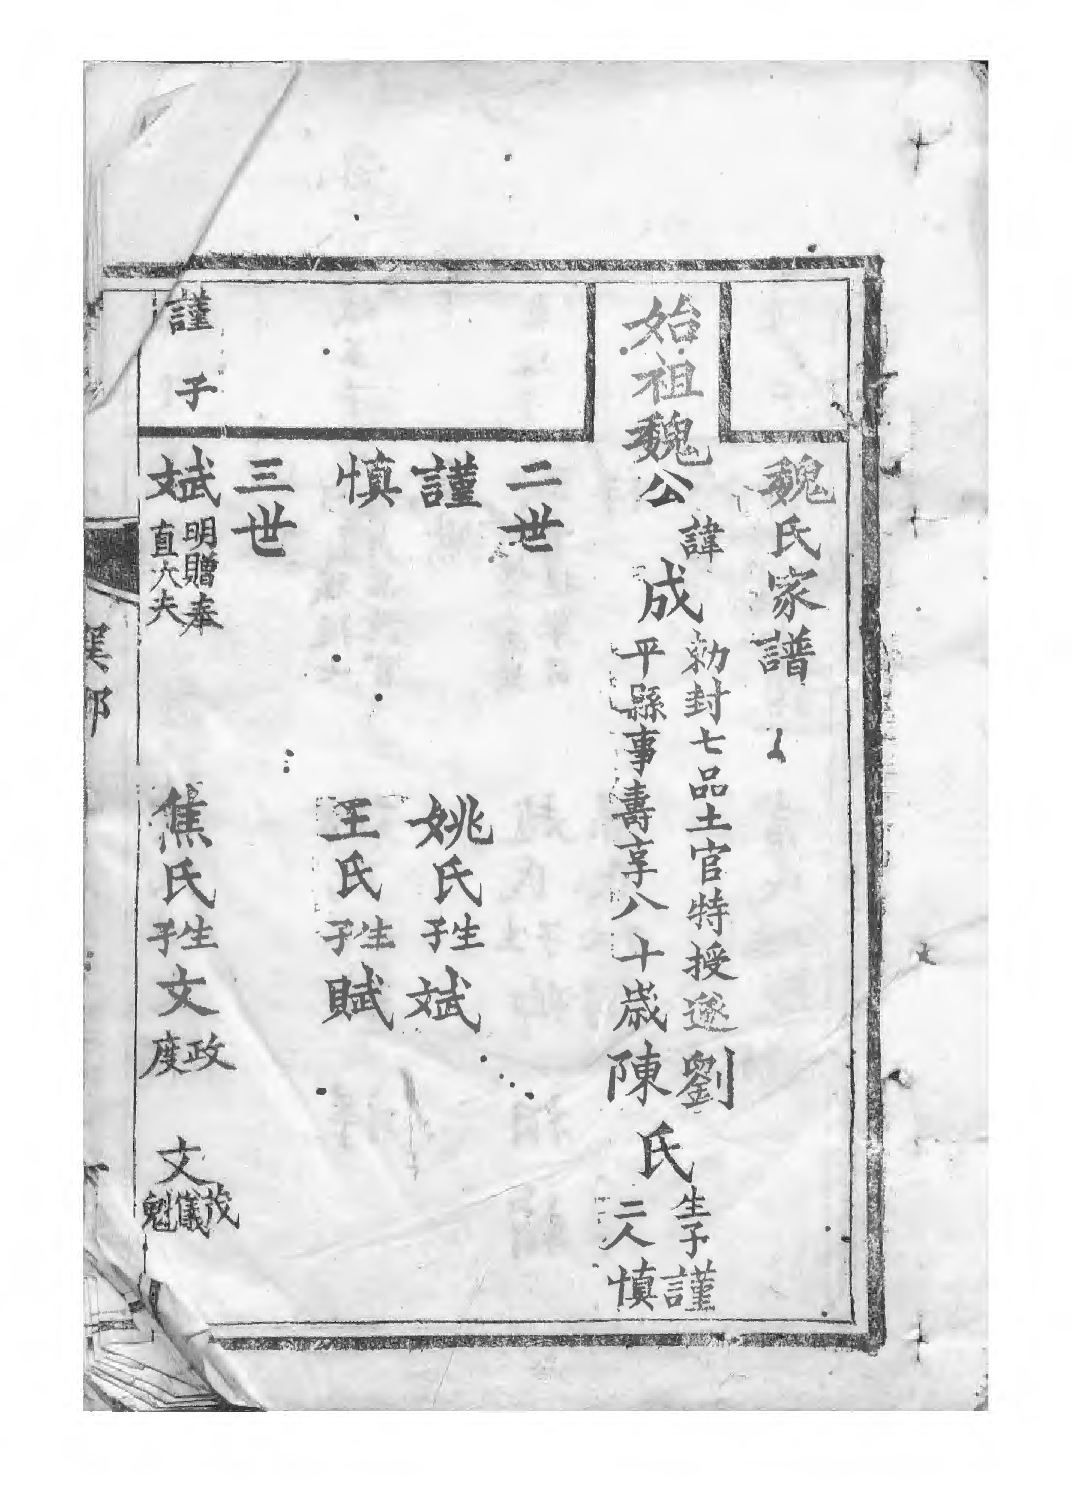 魏氏家譜
始祖魏公
諱
成
勅封七品土官特授遂
平縣事壽享八十歲
劉
陳
氏
生子謹
二人慎
二世
謹 姚氏生子斌
慎 王氏生子賦
三世
謹子
斌 明贈奉直大夫 焦氏生子文政度 文茂儀魁